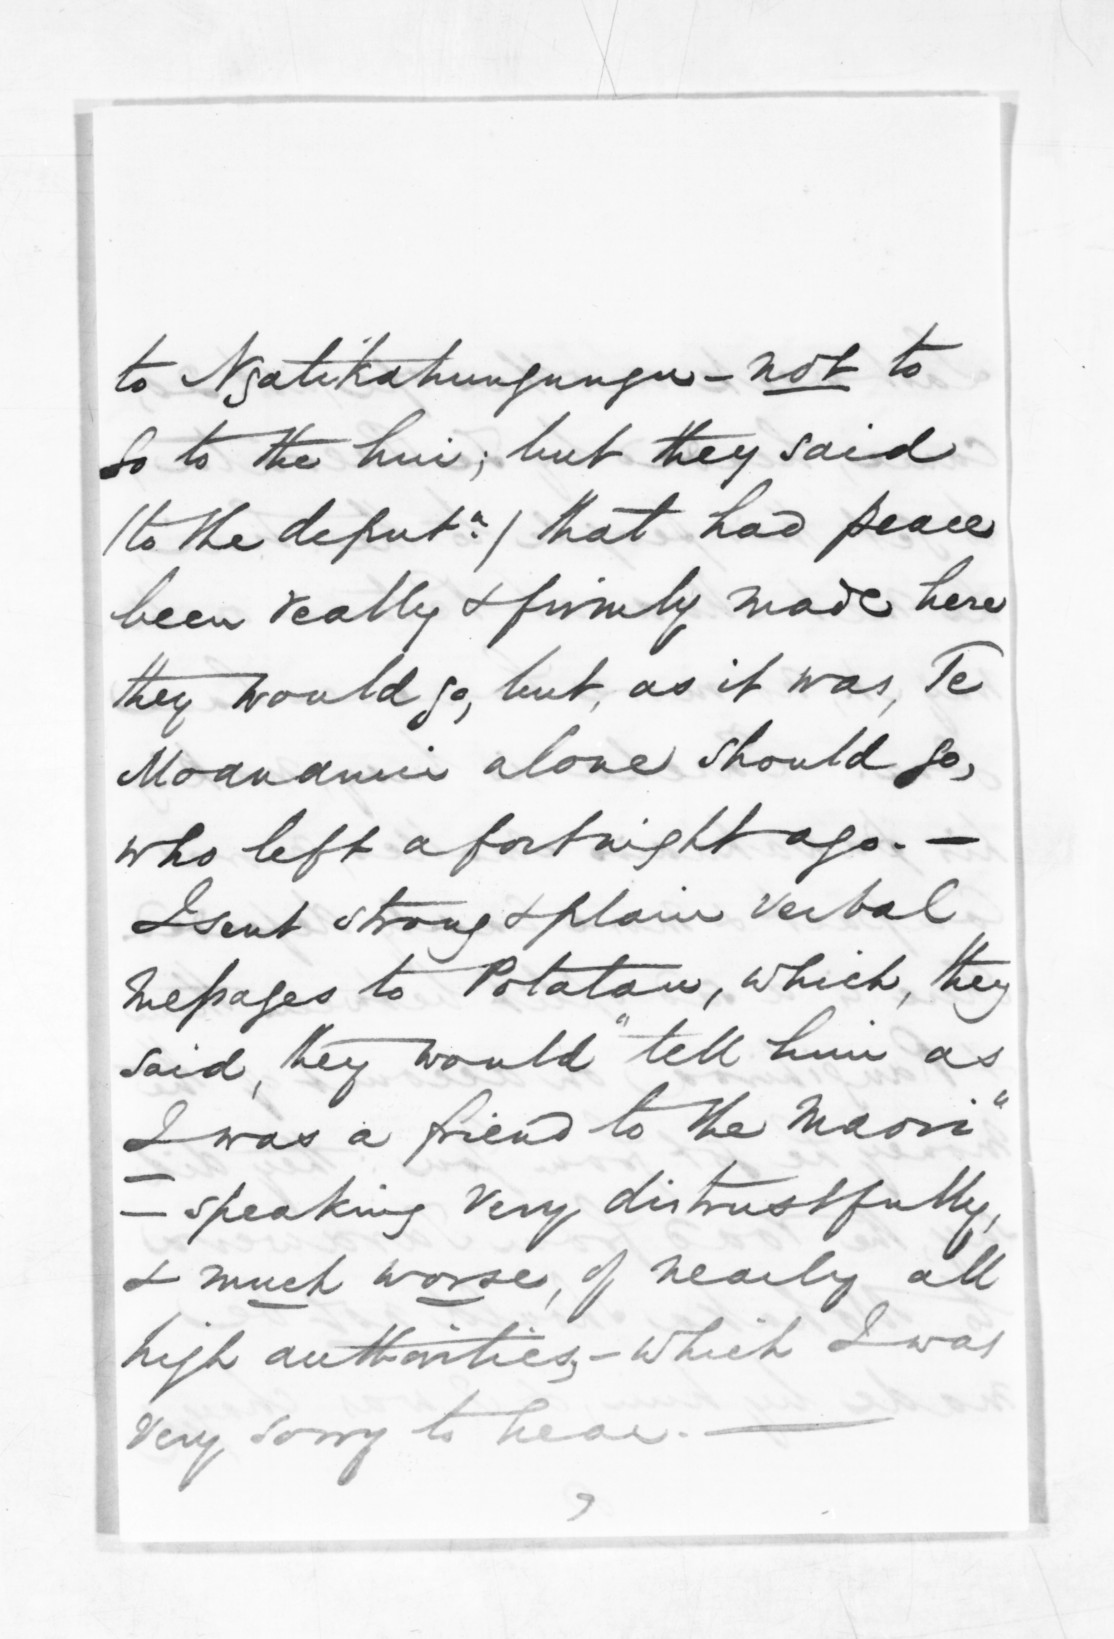 to Ngatikahungungu – not to
go to the hui; but they said
(to the deputn.) that had peace
been really & firmly made here
they would go, but, as it was, Te
Moananui alone should go,
who left a fortnight ago. —
I sent strong & plain verbal
messages to Potatau, which, they
said, they would "tell him as
I was a friend to the Maori"
— speaking very distrustfully,
& much worse, of nearly all
high authorities, – which I was
very sorry to hear. —